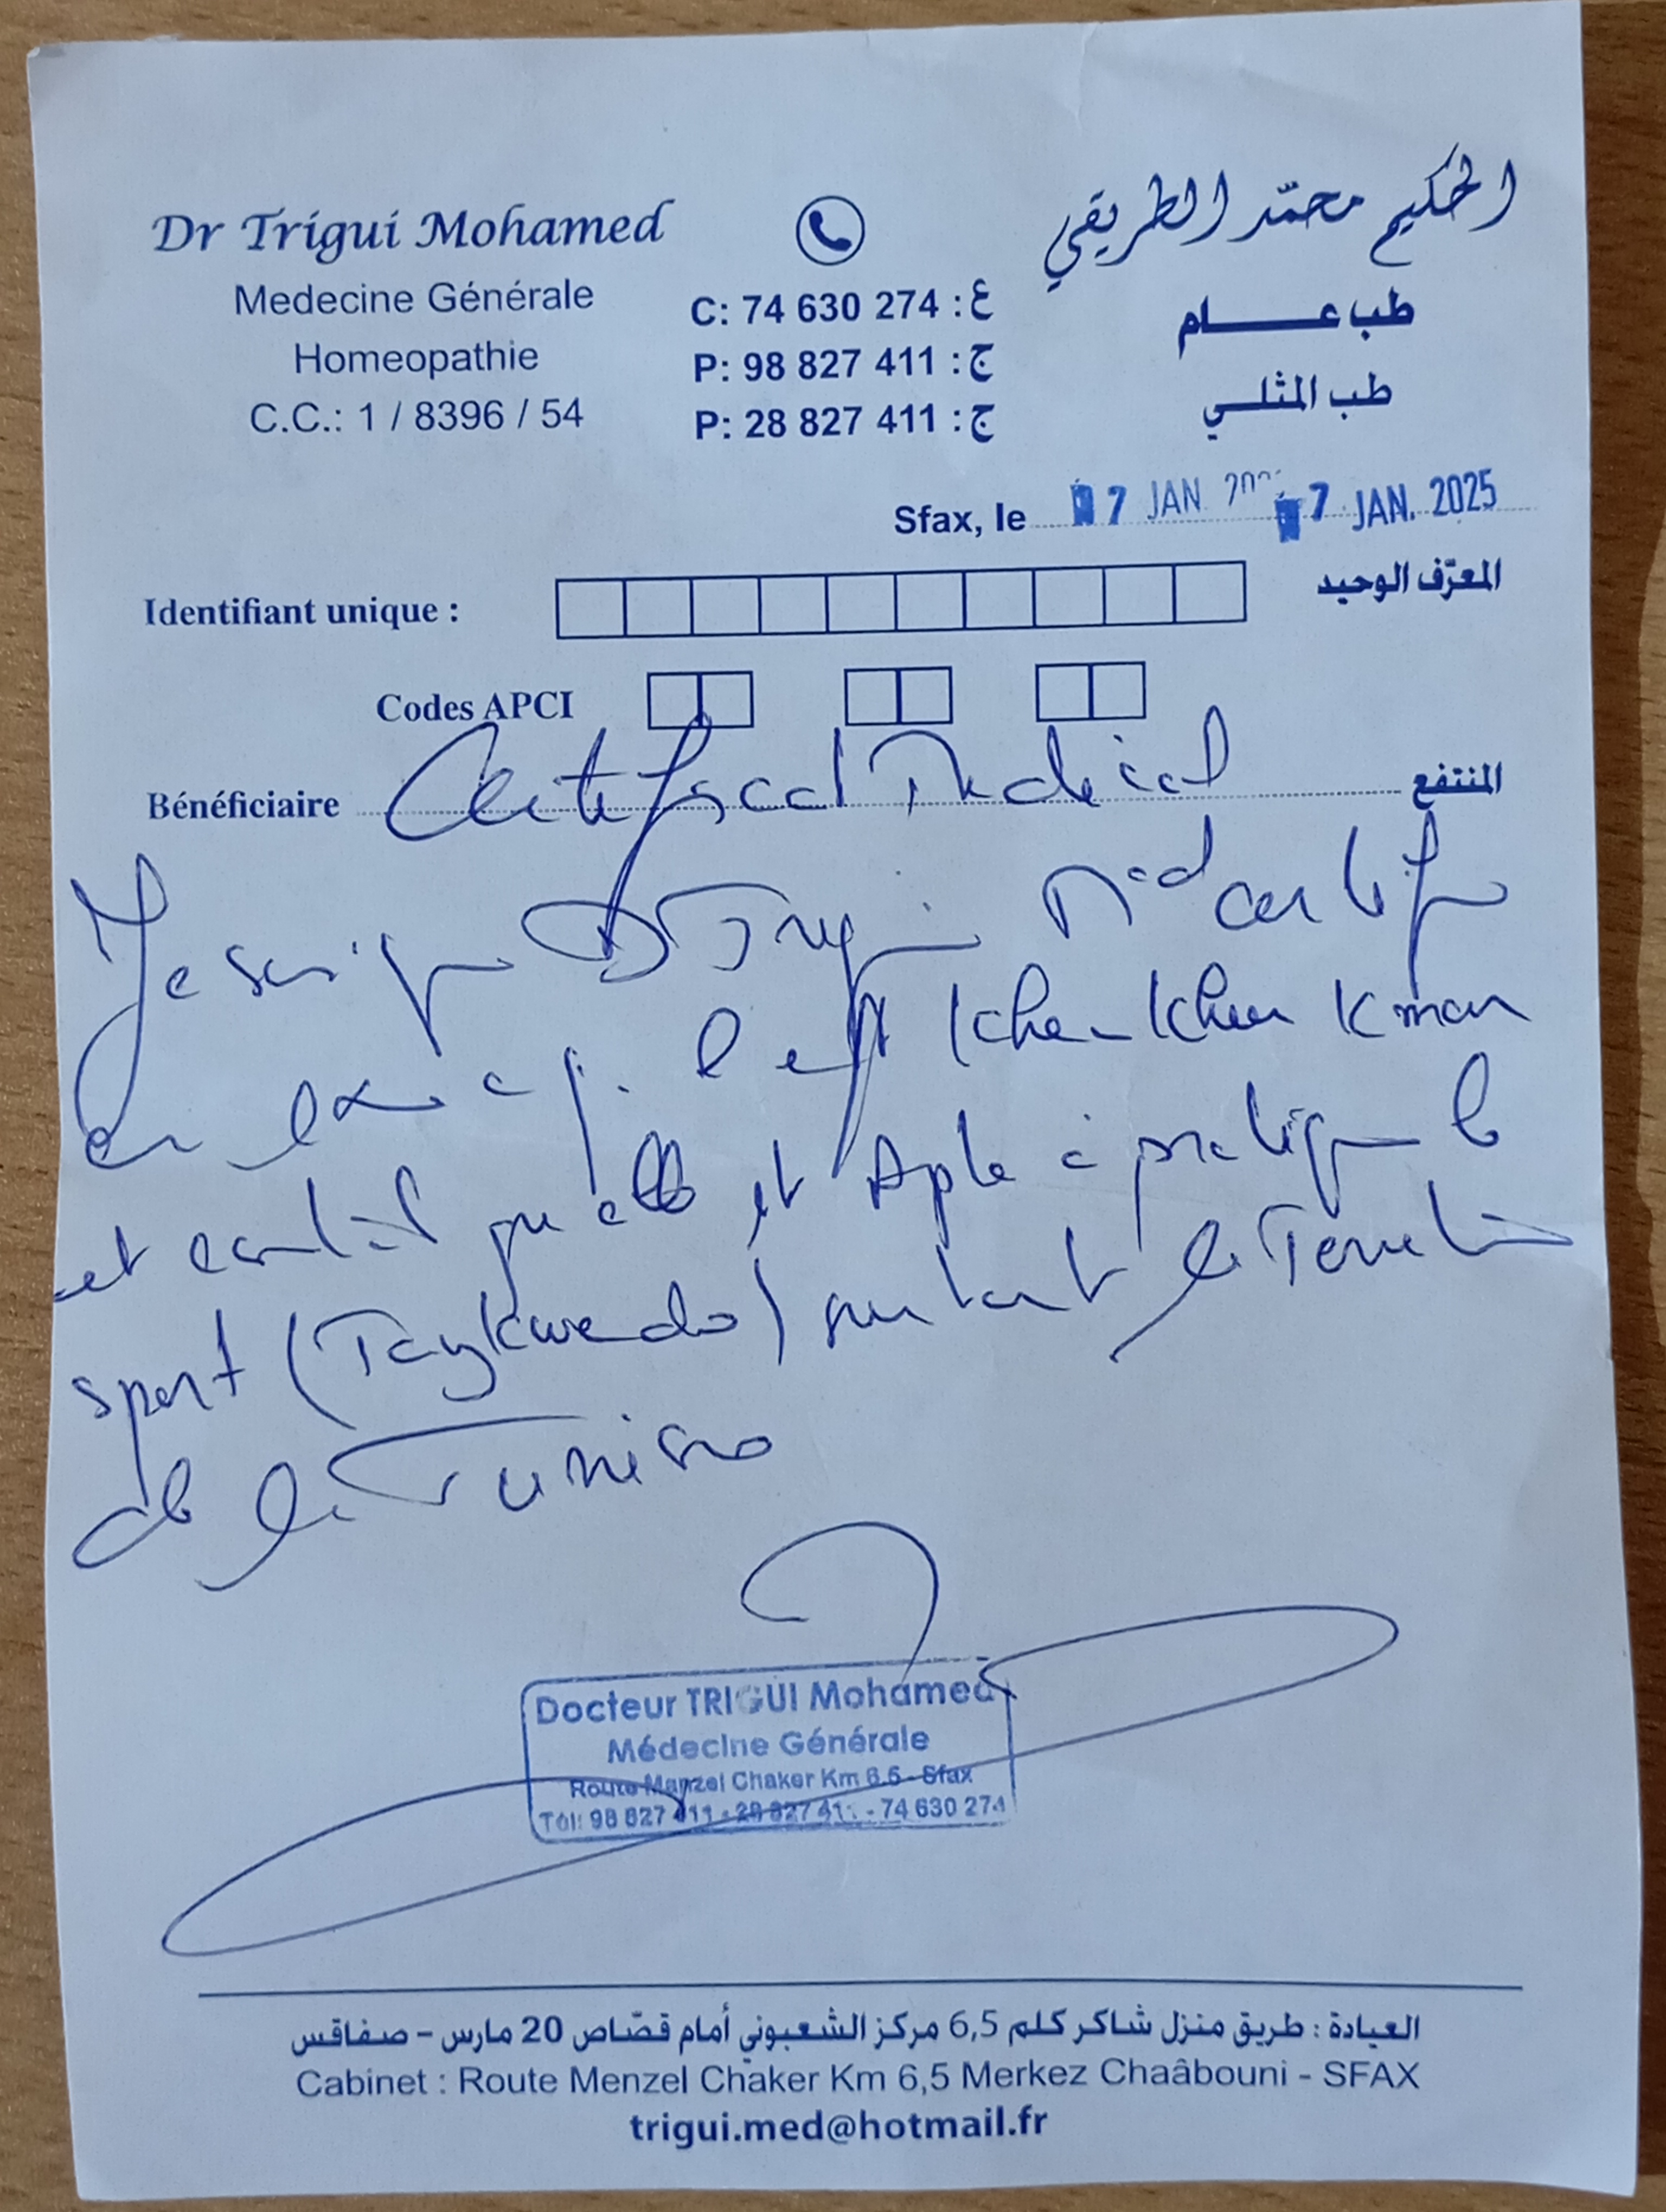 Dr Trigui Mohamed
Medecine Générale
Homeopathie
C.C.: 1 / 8396 / 54
C: 74 630 274 : ع
P: 98 827 411 : ج
P: 28 827 411 : ج
الحكيم محمّد الطريقي
طب عـــــام
طب المثلـــي
Sfax, le 07 JAN 07 JAN. 2025
Identifiant unique : المعرّف الوحيد
Codes APCI
Bénéficiaire Certificat Medical المنتفع
Je soussigné Dr Trigui Med certifie
avoir examiné l'enft Khen Khen
et constaté qu'elle est Apte à pratiquer le
sport (Taykwendo) sur tout le Territoire
de la Tunisie
Docteur TRIGUI Mohamed
Médecine Générale
Route Manzel Chaker Km 6.5 - Sfax
Tél: 98 827 411 - 28 827 411 - 74 630 274
العيادة : طريق منزل شاكر كلم 6,5 مركز الشعبوني أمام قصّاص 20 مارس – صفاقس
Cabinet : Route Menzel Chaker Km 6,5 Merkez Chaâbouni - SFAX
trigui.med@hotmail.fr